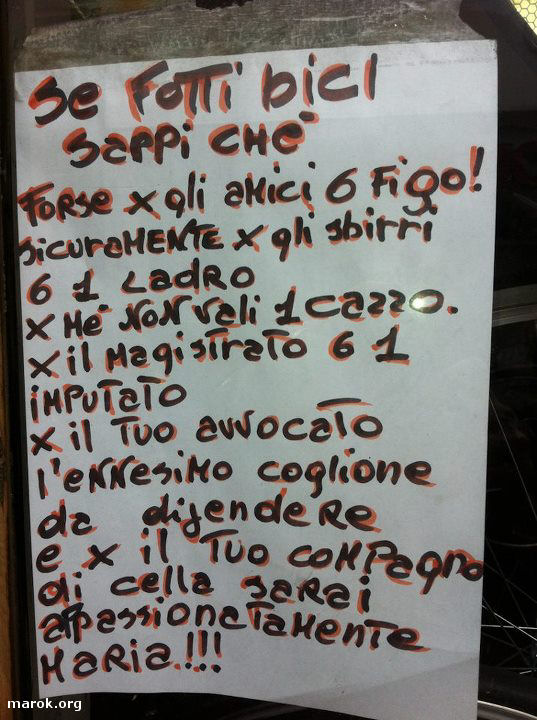 Se FOTTI bICI
SAPPI CHE'
FORSE x gli AMICI 6 FIGO!
SICURAMENTE x gli sbirri
6 1 LADRO
x ME NON VALI 1 CAZZO.
x il MAGISTRATO 6 1
IMPUTATO
x il TUO AVVOCATO
l'ENNESIMO COGLIONE
da difendeRe
e x il TUO COMPAGNO
di cella SARAI
APPASSIONATAMENTE
MARIA!!!
marok.org